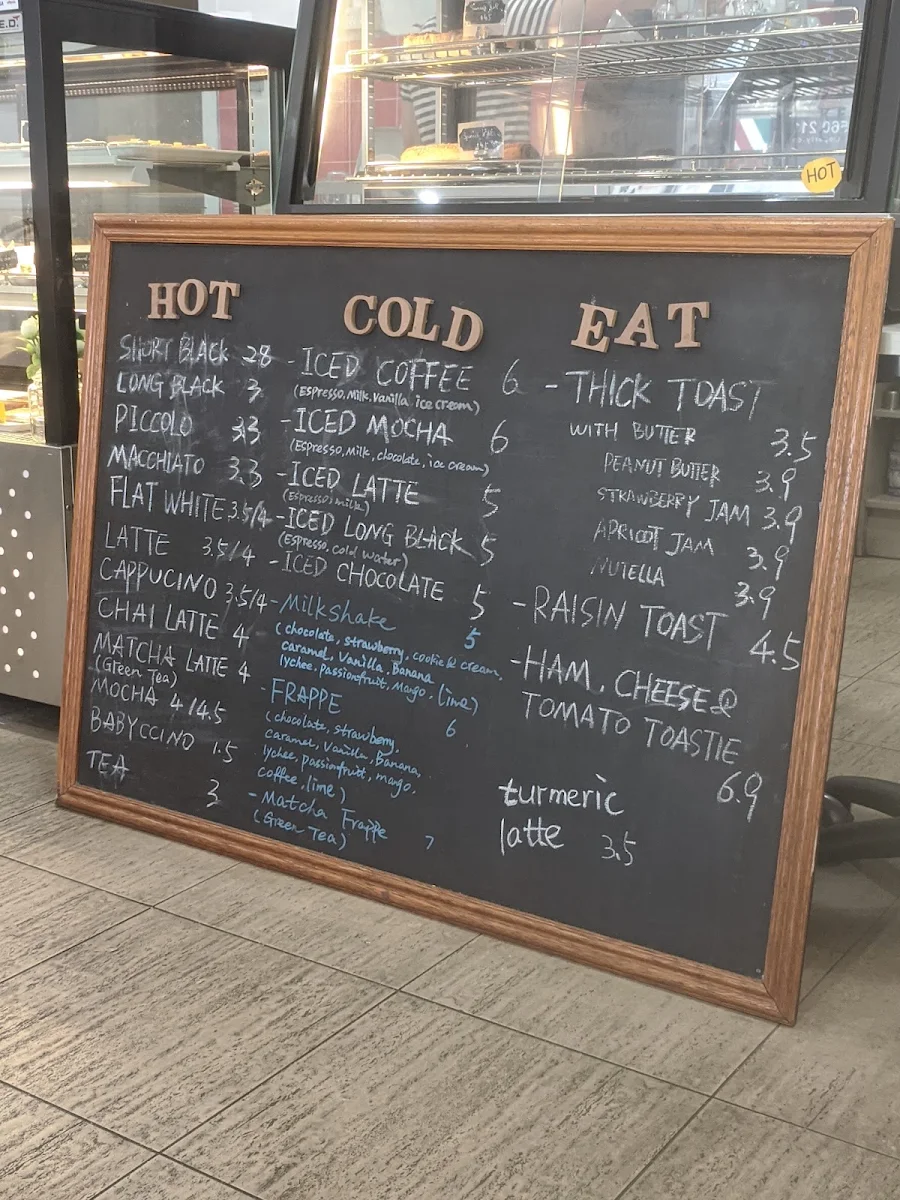 HOT
HOT
SHORT BLACK 28
LONG BLACK 3
PICCOLO 33
MACCHIATO 3.3
FLAT WHITE 3.5/4
LATTE 3.5/4
CAPPUCINO 3.5/4
CHAI LATTE 4
MATCHA LATTE 4
(Green Tea)
MOCHA 4/4.5
BABYCCINO 1.5
TEA 3
COLD
- ICED COFFEE 6
(Espresso, Milk, Vanilla ice cream)
- ICED MOCHA 6
(Espresso, Milk, chocolate, ice cream)
- ICED LATTE 5
(Espresso, milk)
- ICED LONG BLACK 5
(Espresso, cold water)
- ICED CHOCOLATE 5
- Milkshake 5
(chocolate, strawberry, cookie & cream,
caramel, Vanilla, Banana
lychee, passionfruit, Mango, lime)
- FRAPPE 6
(chocolate, strawberry,
caramel, Vanilla, Banana,
lychee, passionfruit, mango,
coffee, lime)
- Matcha Frappe
(Green Tea) 7
EAT
- THICK TOAST
WITH BUTTER 3.5
PEANUT BUTTER 3.9
STRAWBERRY JAM 3.9
APRICOT JAM 3.9
NUTELLA 3.9
- RAISIN TOAST 4.5
- HAM, CHEESE &
TOMATO TOASTIE 6.9
turmeric
latte 3.5